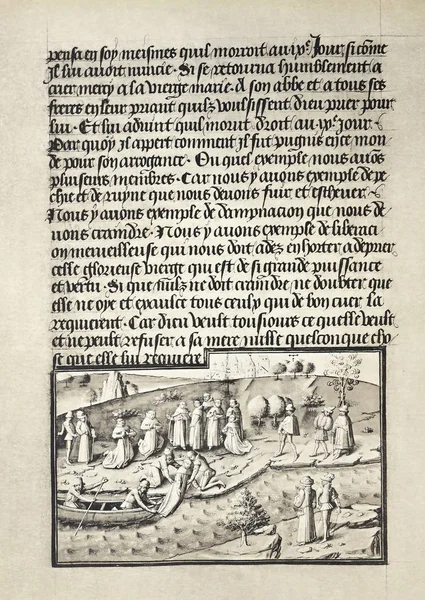 pensa en soy meismes quil morroit au .xxe. Jour, si cōme
Il lui auoit nuncie. Si se retourna humblement a
crier mercy a la vierge marie. A son abbe et a tous ses
freres en leur priant quilz voulsissent dieu prier pour
lui. Et lui aduint quil morut droit au jour.
Par quoy il appert comment il fut pugnis en ce mon
de pour son arrogance. Ou quel exemple nous auōs
pluiseurs membres. Car nous y auons exemple de pe
chie et de ruyne que nous deuons fuir et escheuer.
Nous y auons exemple de dampnacion que nous de
uons craindre. Nous y auons exemple de liberaci
on merueilleuse qui nous doit adez enhorter a deprier
celle glorieuse vierge qui est de si grande puissance
et vertu. Si que nulz ne doit craindre ne doubter que
elle ne oye et exaulce tous ceulx qui de bon cuer la
requierent. Car dieu veult tousiours ce quelle veult
et ne peult refuser a sa mere nulle quelconque cho
se que elle lui requiere